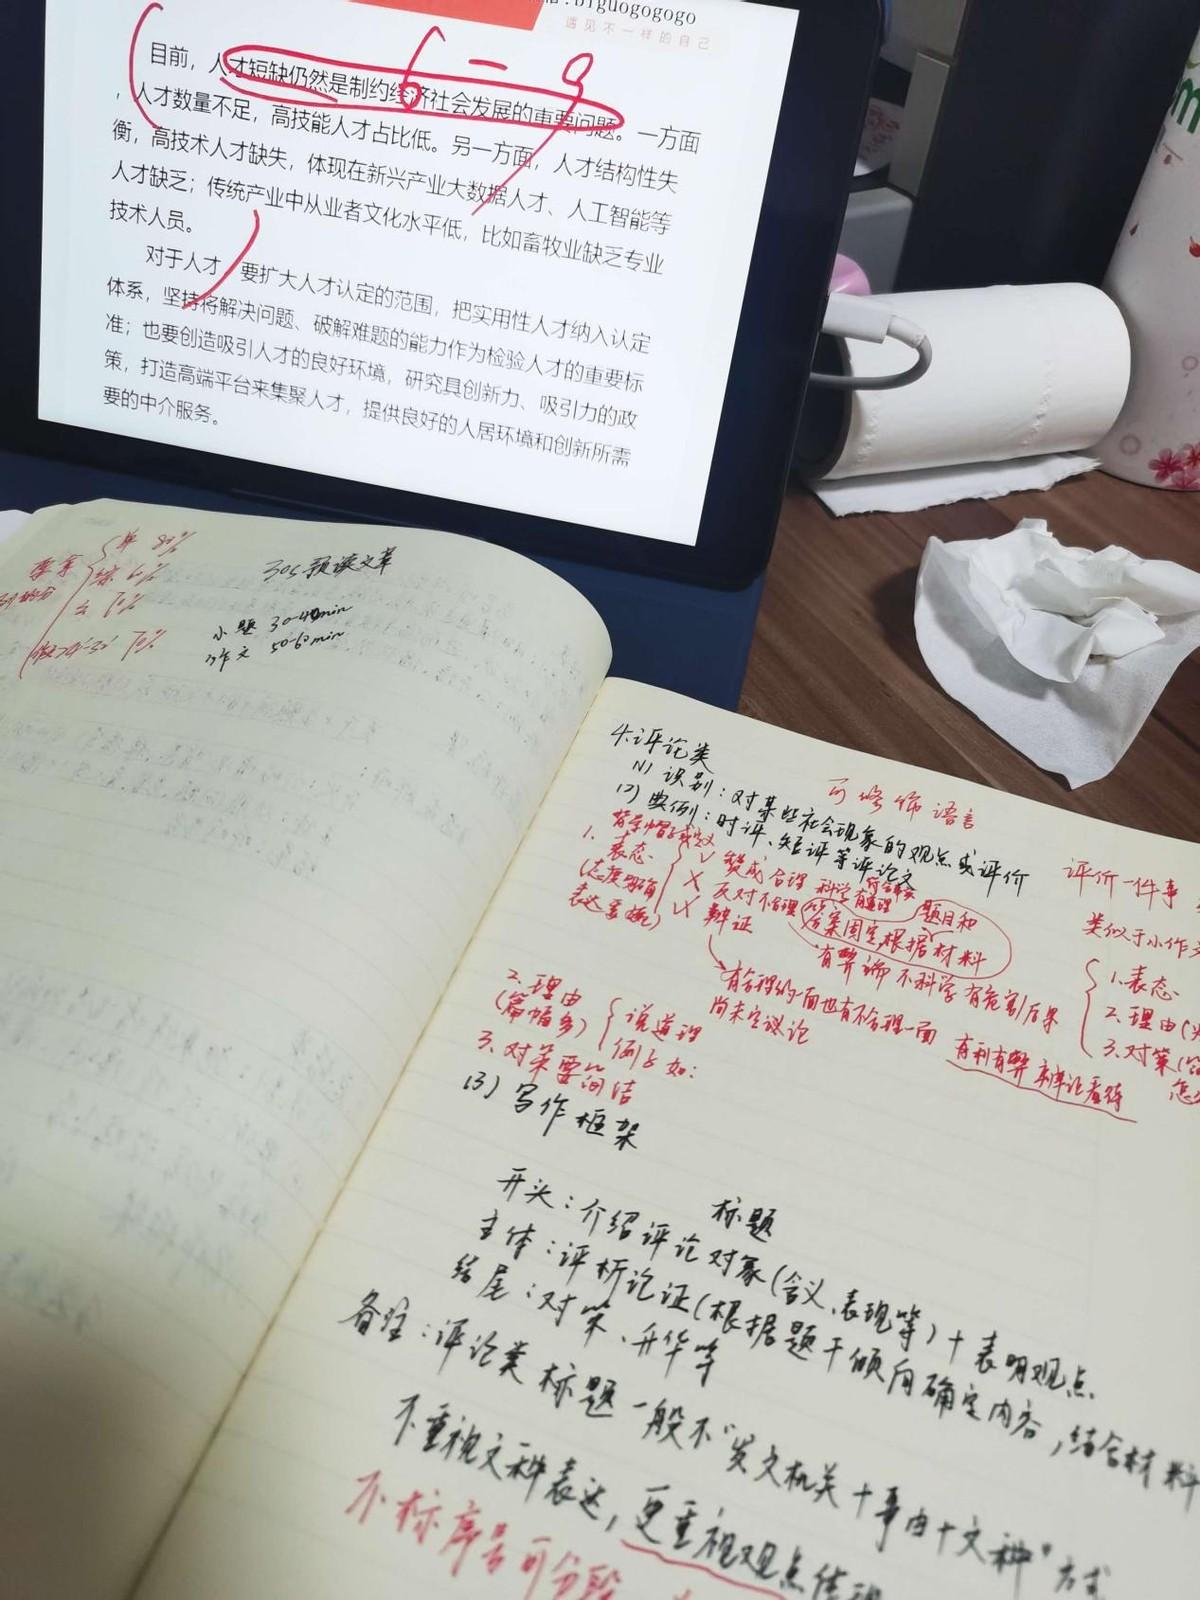 biguogogogo
遇见不一样的自己
6 — 9
目前，人才短缺仍然是制约经济社会发展的重要问题。一方面
，人才数量不足，高技能人才占比低。另一方面，人才结构性失
衡，高技术人才缺失，体现在新兴产业大数据人才、人工智能等
人才缺乏；传统产业中从业者文化水平低，比如畜牧业缺乏专业
技术人员。
对于人才，要扩大人才认定的范围，把实用性人才纳入认定
体系，坚持将解决问题、破解难题的能力作为检验人才的重要标
准；也要创造吸引人才的良好环境，研究具创新力、吸引力的政
策，打造高端平台来集聚人才，提供良好的人居环境和创新所需
要的中介服务。
单 80%
综 60%
公 70%
70%
30s 预读文章
小题 30-40min
作文 50-60min
4.评论类
(1) 识别：对某些社会现象的观点或评价
(2) 典例：时评、短评等评论文
可修饰语言
1. 表态
(态度明确
表达委婉)
✓ 赞成 合理 科学 有道理
X 反对 不合理
辩证
答案固定,根据材料
题目和
有弊端 不科学 有危害/后果
有合理的一面也有不合理一面
尚未定议论
有利有弊 辩论看待
2. 理由
(篇幅多)
说道理
例子如：
3. 对策要简洁
评价一件事
类似于小作文
1. 表态
2. 理由
3. 对策
(3) 写作框架
标题
开头：介绍评论对象(含义、表现等)+表明观点
主体：评析论证(根据题干倾向确定内容，结合材料
结尾：对策、升华等
备注：评论类标题一般不"发文机关+事由+文种"方式
不重视文种表达，更重视观点体现
不标序号可分段